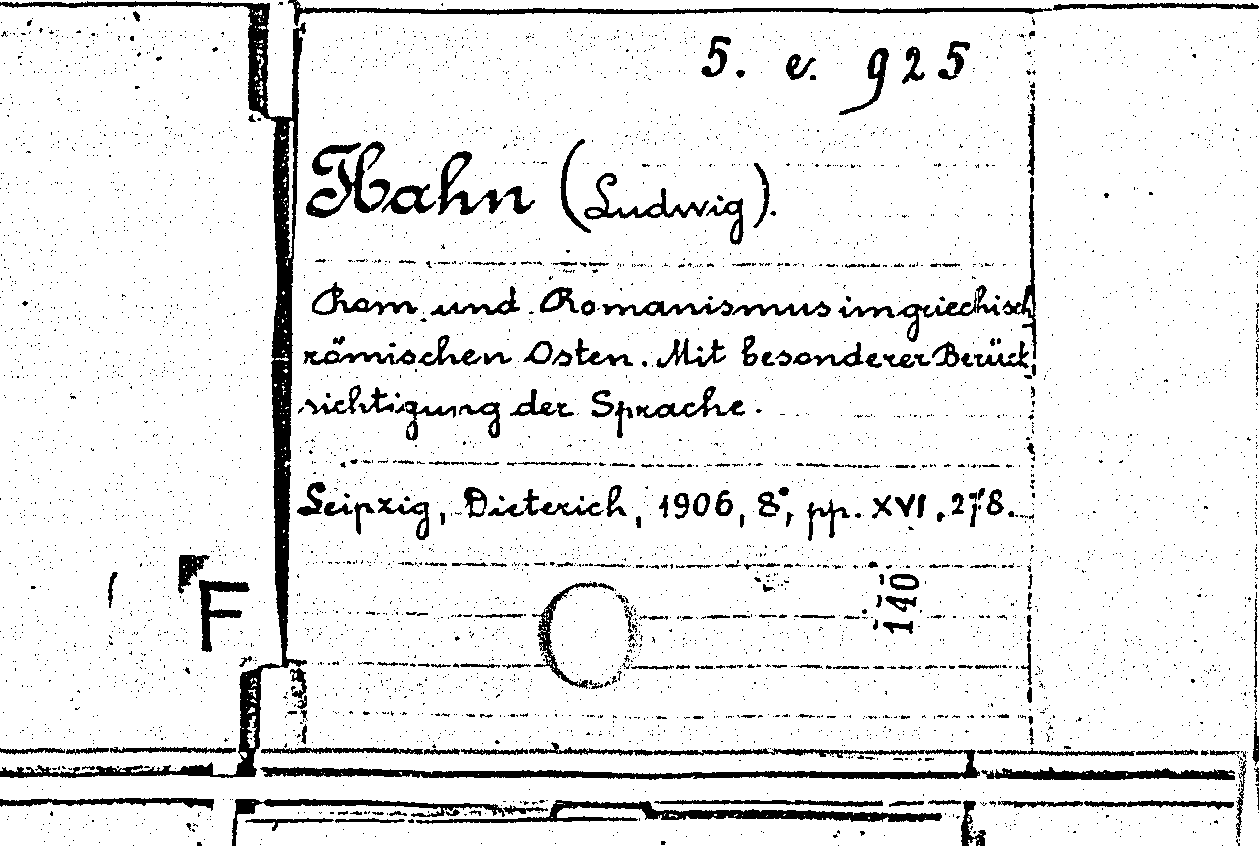 5. e. 925
Hahn (Ludwig).
Rom und Romanismus im griechisch
römischen Osten. Mit besonderer Berück
sichtigung der Sprache.
Leipzig, Dieterich, 1906, 8°, pp. XVI, 278.
140
F